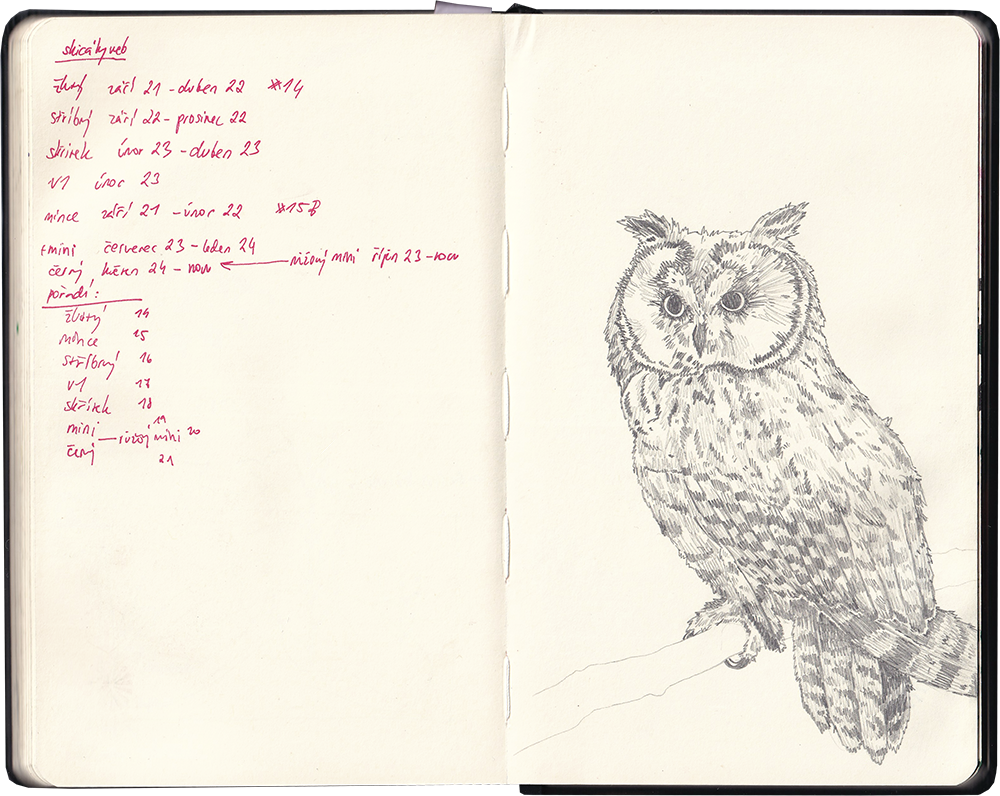 skicáky web
žlutý září 21 - duben 22 #14
stříbrný září 22 - prosinec 22
skřítek únor 23 - duben 23
v1 únor 23
mince září 21 - únor 22 #15
+mini červenec 23 - leden 24
černý květen 24 - now ← růžový mini říjen 23 - now
pořadí:
žlutý 14
mince 15
stříbrný 16
v1 17
skřítek 18
mini 19
růžový mini 20
černý 21